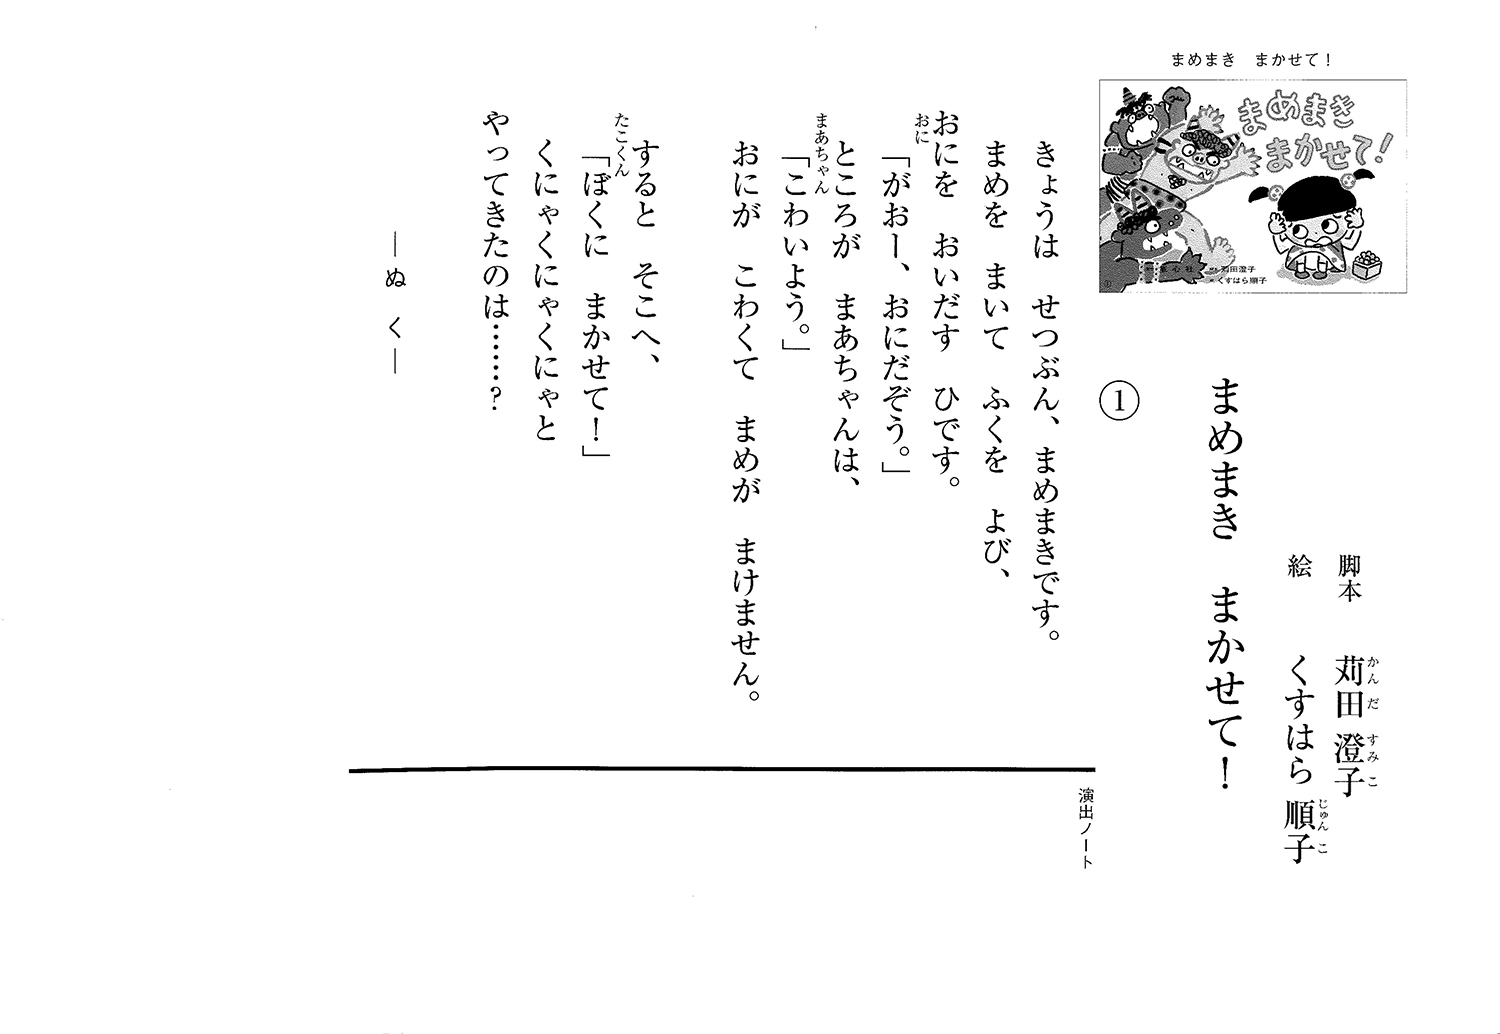 まめまき　まかせて！
まめまき
まかせて！
童心社
苅田澄子
くすはら順子
脚本　苅田澄子
かんだ　すみこ
絵　くすはら順子
じゅんこ
まめまき　まかせて！
①
きょうは　せつぶん、まめまきです。
まめを　まいて　ふくを　よび、
おにを　おいだす　ひです。
おに
「がおー、おにだぞう。」
ところが　まあちゃんは、
まあちゃん
「こわいよう。」
おにが　こわくて　まめが　まけません。
すると　そこへ、
たこくん
「ぼくに　まかせて！」
くにゃくにゃくにゃと
やってきたのは……？
―ぬ　く―
演出ノート